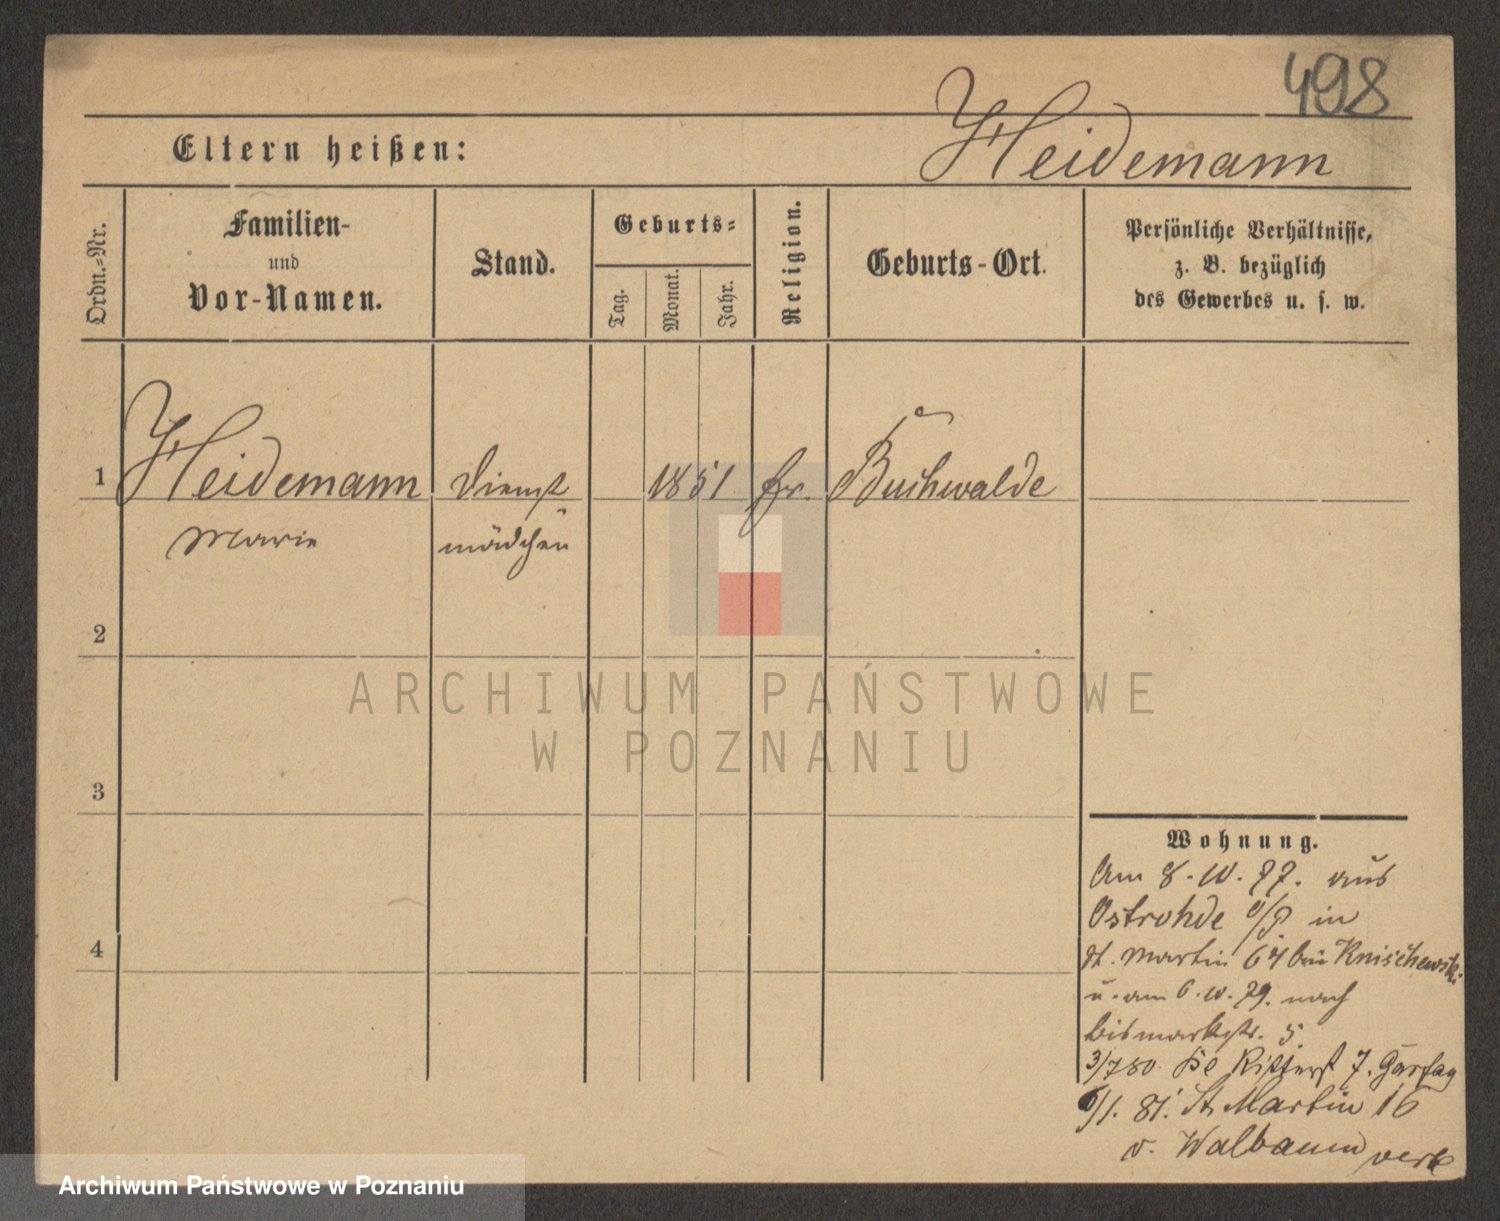 498
Eltern heißen:
Heidemann
Ordn.-Nr.
Familien-
und
Vor-Namen.
Stand.
Geburts-
Tag.
Monat.
Jahr.
Religion.
Geburts-Ort.
Persönliche Verhältnisse,
z. B. bezüglich
des Gewerbes u. s. w.
1
Heidemann
Dienst
1851
Buchwalde
Marie
mädchen
2
3
4
ARCHIWUM PAŃSTWOWE
W POZNANIU
Wohnung.
Am 8. 10. 77. aus
Ostrohde in
St. Martin 64 bei
u. am 6. 10. 79. nach
Bismarckstr. 5.
3/7 80
6/1. 81. St. Martin 16
v. Walbaum
Archiwum Państwowe w Poznaniu